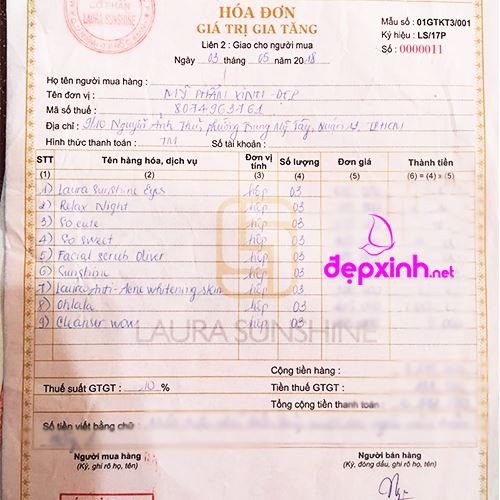 CỔ PHẦN
LAURA SUNSHINE
HÓA ĐƠN
GIÁ TRỊ GIA TĂNG
Liên 2 : Giao cho người mua
Ngày 03 tháng 05 năm 2018
Mẫu số : 01GTKT3/001
Ký hiệu : LS/17P
Số : 0000011
Họ tên người mua hàng :
Tên đơn vị : MỸ PHẨM XINH ĐẸP
Mã số thuế : 8074963761
Địa chỉ : 91/10 Nguyễn Ảnh Thủ, phường Trung Mỹ Tây, Quận 12, TPHCM
Hình thức thanh toán : TM Số tài khoản :
STT Tên hàng hóa, dịch vụ Đơn vị tính Số lượng Đơn giá Thành tiền
(1) (2) (3) (4) (5) (6) = (4) x (5)
1) Laura Sunshine Eyes hộp 03
2) Relax Night hộp 03
3) So cute hộp 03
4) So sweet hộp 03
5) Facial scrub Oliver hộp 03
6) Sunshine hộp 03
7) Laura Anti-Acne whitening skin hộp 03
8) Ohlala hộp 03
9) Cleanser wow hộp 03
đẹpxinh.net
LAURA SUNSHINE
Cộng tiền hàng :
Thuế suất GTGT : 10 % Tiền thuế GTGT :
Tổng cộng tiền thanh toán :
Số tiền viết bằng chữ :
Người mua hàng
(Ký, ghi rõ họ, tên)
Người bán hàng
(Ký, đóng dấu, ghi rõ họ, tên)